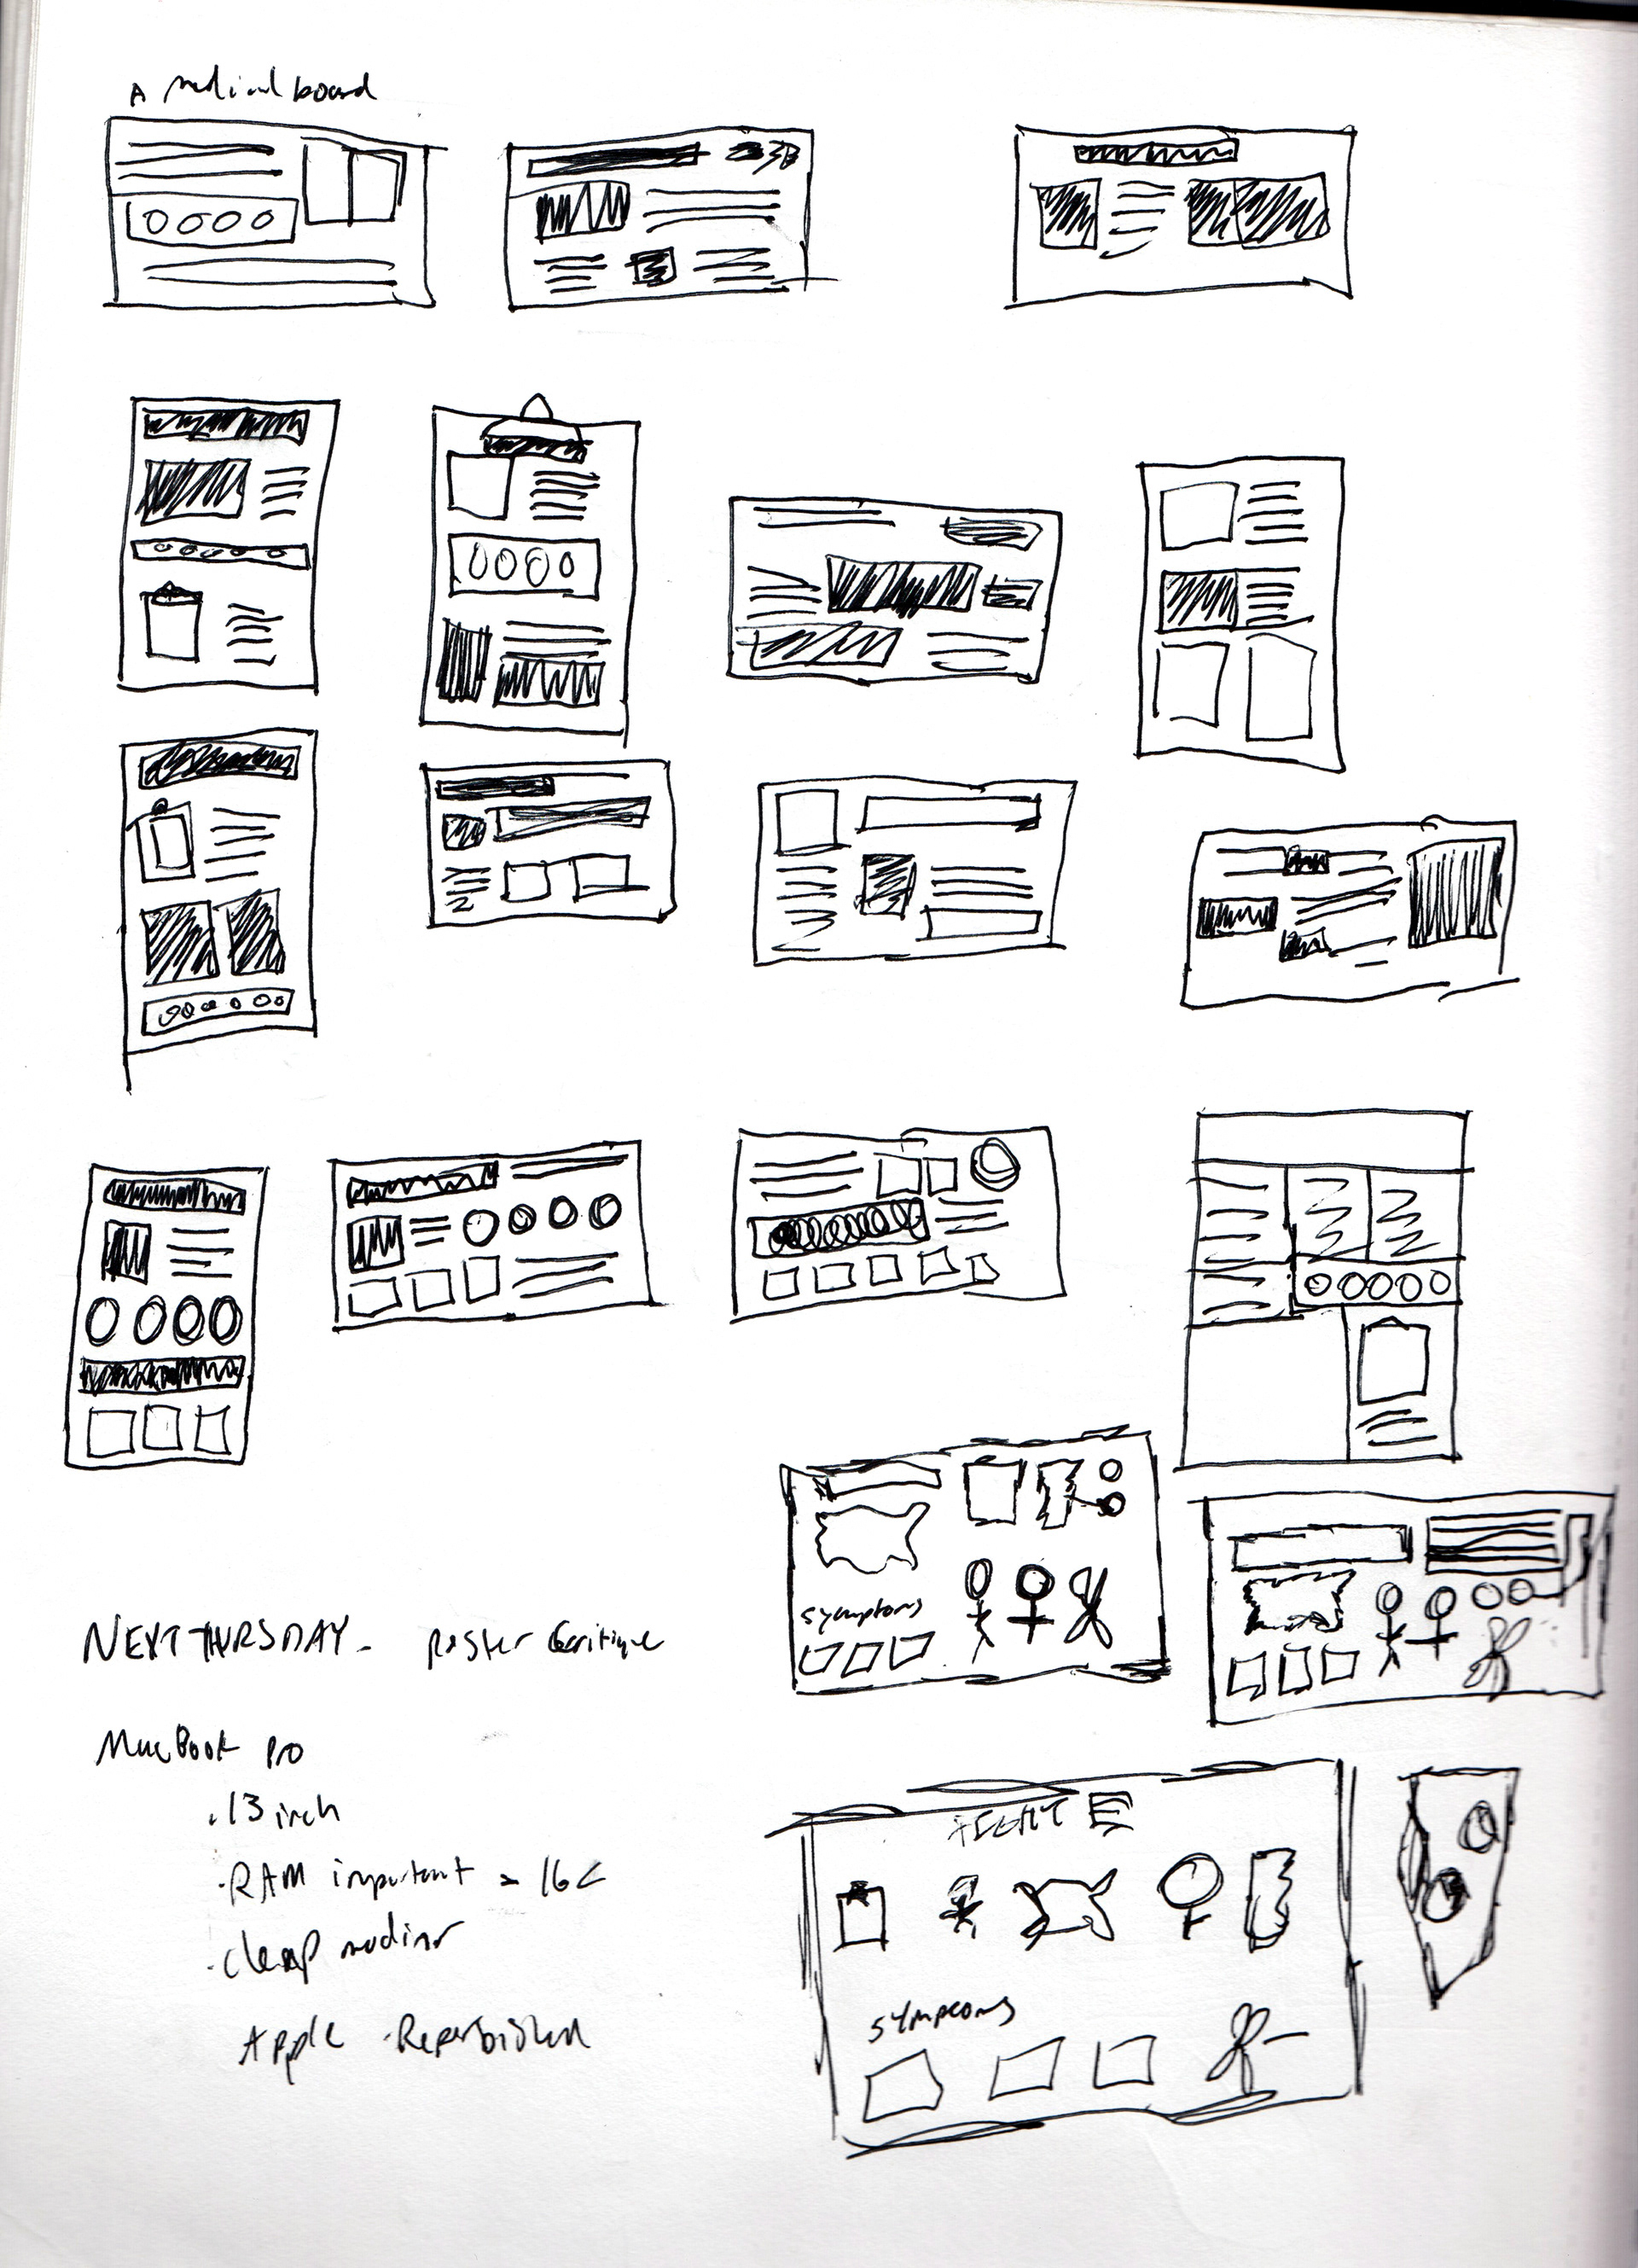 A medical board
NEXT THURSDAY - Poster Critique
symptoms
MacBook Pro
. 13 inch
. RAM important = 16
. cheap
Apple
symptoms